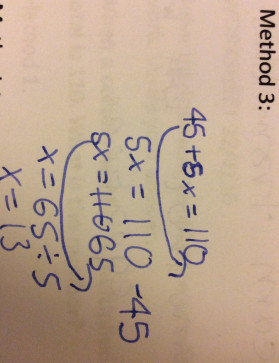 Method 3:
45 + 5x = 110
5x = 110 - 45
5x = 65
x = 65 ÷ 5
x = 13